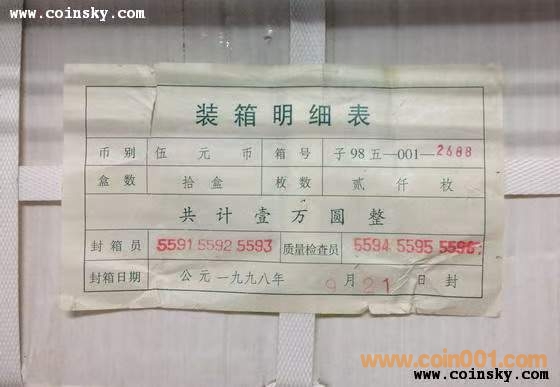 www.coinsky.com
www.coinsky.com
装箱明细表
币别 伍元币 箱号 子98五—001—2688
盒数 拾盒 枚数 贰仟枚
共计壹万圆整
封箱员 5591 5592 5593 质量检查员 5594 5595 5596
封箱日期 公元一九九八年 9月21日封
www.coin001.com
www.coinsky.com
www.coinsky.com